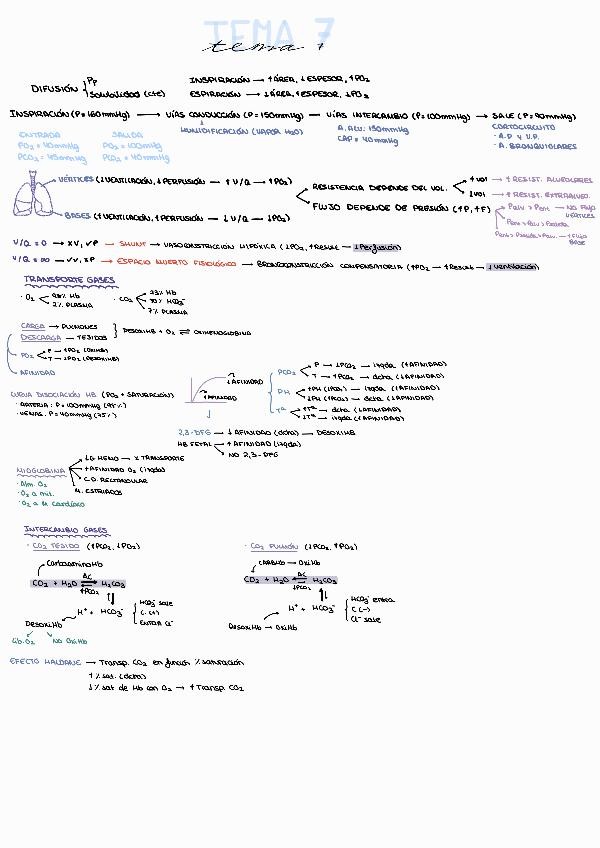 TEMA 7
tema 7
DIFUSIÓN Pp INSPIRACIÓN → ↑ÁREA, ↓ESPESOR, ↑PO2
Solubilidad (cte) ESPIRACIÓN → ↓ÁREA, ↑ESPESOR, ↓PO2
INSPIRACIÓN (P=160mmHg) → VÍAS CONDUCCIÓN (P=150mmHg) → VÍAS INTERCAMBIO (P=100mmHg) → SALE (P=90mmHg)
ENTRADA SALIDA HUMIDIFICACIÓN (VAPOR H2O) A. ALV: 150mmHg CORTOCIRCUITO
PO2 = 40mmHg PO2 = 100mmHg CAP = 40mmHg · A.P y V.P.
PCO2 = 45mmHg PCO2 = 40mmHg · A. BRONQUIOLARES
VÉRTICES (↓VENTILACIÓN, ↓PERFUSIÓN → ↑V/Q → ↑PO2)
RESISTENCIA DEPENDE DEL VOL. ↑VOl → ↑ RESIST. ALVEOLARES
↓VOl → ↑ RESIST. EXTRAALVEO.
FLUJO DEPENDE DE PRESIÓN (↑P, ↑F) Palv > Part → NO FLUJO VÉRTICES
BASES (↑VENTILACIÓN, ↑PERFUSIÓN → ↓V/Q → ↓PO2)
V/Q = 0 → XV, ✓P → SHUNT → VASOCONSTRICCIÓN HIPÓXICA (↓PO2, ↑Result → ↓Perfusión)
V/Q = ∞ → ✓V, XP → ESPACIO MUERTO FISIOLÓGICO → BRONCOCONSTRICCIÓN COMPENSATORIA (↑PO2 → ↑Result → ↓Ventilación)
TRANSPORTE GASES
· O2 98% Hb · CO2 23% Hb
2% PLASMA 70% HCO3-
7% PLASMA
CARGA → PULMONES DESOXIHB + O2 ⇌ OXIHEMOGLOBINA
DESCARGA → TEJIDOS
PO2 P → ↑PO2 (OXIHB)
T → ↓PO2 (DESOXIHB)
AFINIDAD
↓AFINIDAD
↑AFINIDAD
CURVA DISOCIACIÓN HB (PO2 + SATURACIÓN)
· ARTERIA: P=100mmHg (97%)
· VENAS: P=40mmHg (75%)
PCO2 P → ↓PCO2 → izqda. (↑AFINIDAD)
T → ↑PCO2 → dcha (↓AFINIDAD)
PH ↑PH (↓PCO2) → izqda. (↑AFINIDAD)
↓PH (↑PCO2) → dcha. (↓AFINIDAD)
Tª ↑Tª → dcha. (↓AFINIDAD)
↓Tª → izqda. (↑AFINIDAD)
2,3-DFG → ↓ AFINIDAD (dcha) → DESOXIHB
HB FETAL → ↑ AFINIDAD (izqda)
NO 2,3-DFG
MIOGLOBINA ↓G HEMO → X TRANSPORTE
+AFINIDAD O2 (izqda)
C.D. RECTANGULAR
M. ESTRIADOS
· Alm. O2
· O2 a mit.
· O2 a M cardíaco
INTERCAMBIO GASES
· CO2 TEJIDO (↑PCO2, ↓PO2) · CO2 PULMÓN (↓PCO2, ↑PO2)
CarbaminoHb CARBHb → OxiHb
CO2 + H2O AC H2CO3 CO2 + H2O AC H2CO3
↑PCO2 ↓PCO2
H+ + HCO3- HCO3- sale H+ + HCO3- HCO3- entra
C. (+) C (-)
ENTRA Cl- Cl- sale
DesoxiHb DesoxiHb → OxiHb
Lib. O2 No OxiHb
EFECTO HALDANE → Transp. CO2 en función % saturación
↑% sat. (dcha)
↓% sat de Hb con O2 → ↑ Transp. CO2